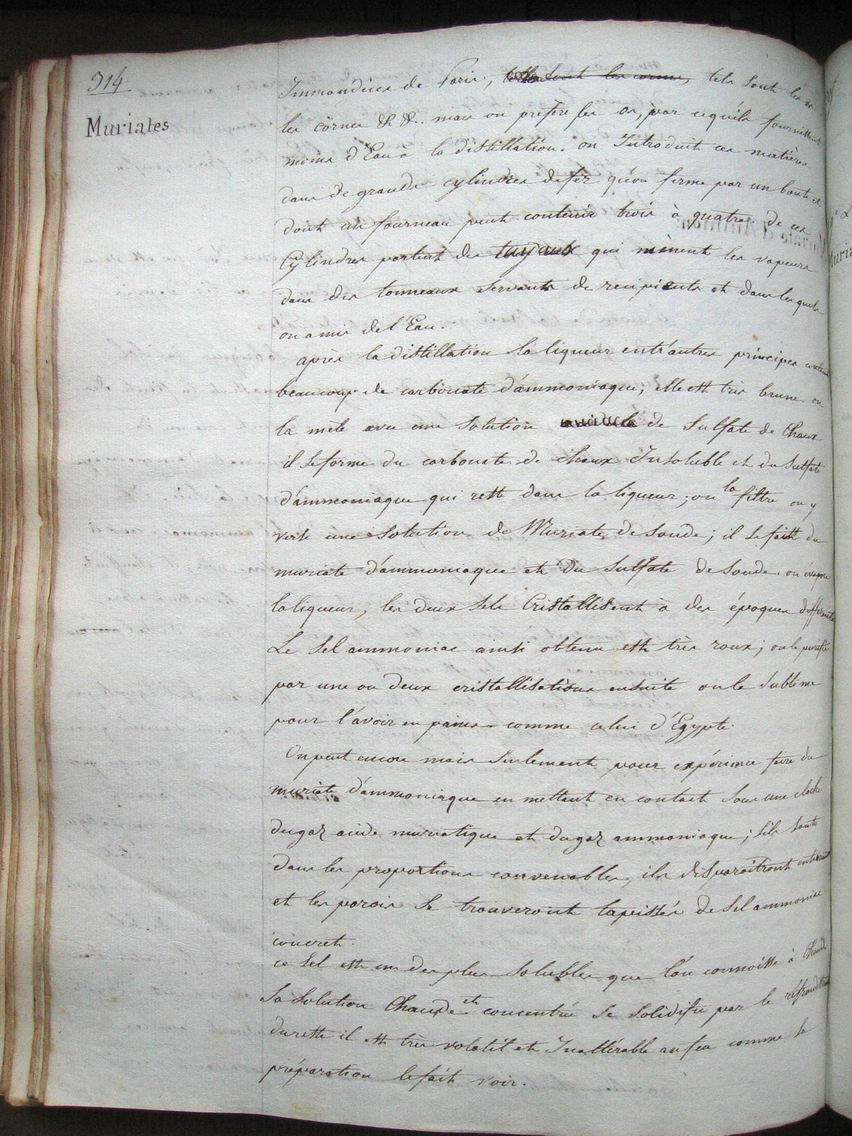 314
Muriates
Immondices de Paris, telle sont les cornes, tels sont les os
les cornes &. &.. mais on préfère les os, par ce qu'ils fournissent
moins d'Eau à la distillation. on Introduit ces matières
dans de grands cylindres de fer, qu'on ferme par un bout et
dont un fourneau peut contenir trois à quatre. de ces
Cylindres partent des tuyaux qui mènent les vapeurs
dans des tonneaux servants de recipients et dans lesquels
on a mis de l'Eau.
après la distillation la liqueur entr'autres principes contient
beaucoup de carbonate d'ammoniaque, elle est très brune. on
la mele avec une solution de Sulfate de Chaux
il se forme du carbonate de chaux Insoluble et du Sulfate
d'ammoniaque qui reste dans la liqueur; on la filtre on y
verse une solution de Muriate de Soude; il se fait du
muriate d'ammoniaque et du Sulfate de Soude. on évapore
la liqueur, les deux Sels Cristallisent à des époques différentes
Le Sel ammoniac ainsi obtenu est très roux; on le purifie
par une ou deux cristallisations ensuite on le sublime
pour l'avoir en pains comme celui d'Egypte.
On peut encore mais seulement pour expérience faire du
muriate d'ammoniaque en mettant en contact sous une cloche
du gaz acide muriatique et du gaz ammoniaque; s'ils sont
dans les proportions convenables, ils disparaitront entièrement
et les parois se trouveront tapissées de Sel ammoniac
concret.
ce Sel est un des plus solubles que l'on connoisse à chaud
Sa solution Chaude et concentrée se solidifie par le refroidissement
du reste il est très volatil et Inaltérable au feu comme sa
préparation le fait voir.